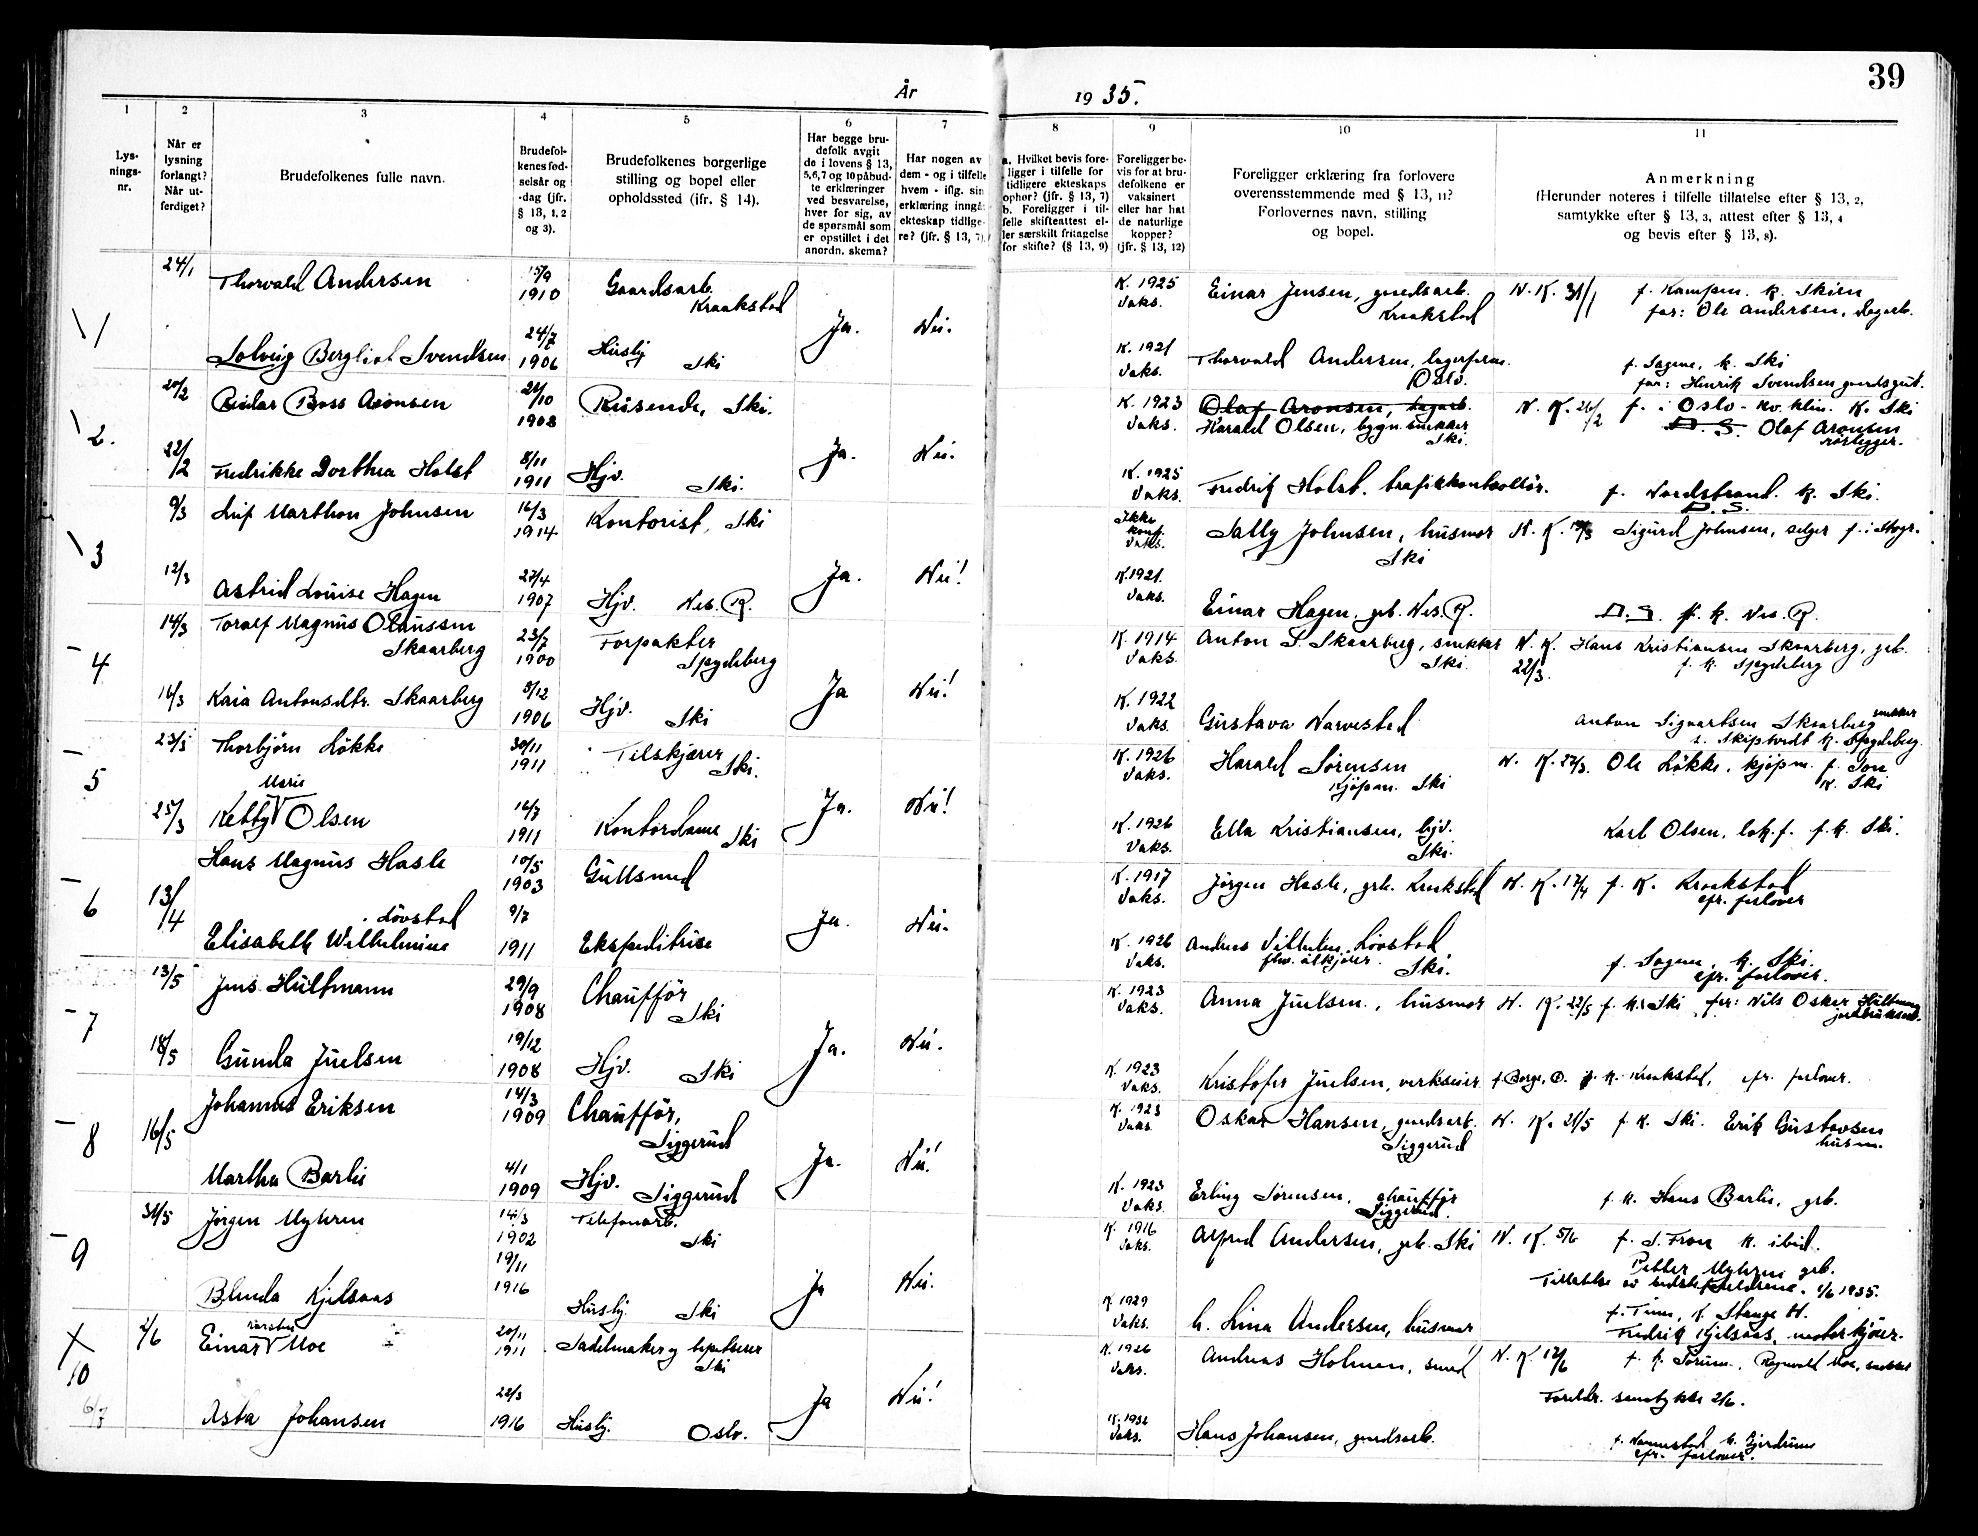 39
År 1935.
1 2 3 4 5 6 7 8 9 10 11
Lysningsnr.
Når er lysning forlangt? Når utferdiget?
Brudefolkenes fulle navn.
Brudefolkenes fødselsår og -dag (jfr. § 13, 1, 2 og 3).
Brudefolkenes borgerlige stilling og bopel eller opholdssted (jfr. § 14).
Har begge brudefolk avgit de i lovens § 13, 5,6,7 og 10 påbudte erklæringer ved besvarelse, hver for sig, av de spørsmål som er opstillet i det anordn. skema?
Har nogen av dem - og i tilfelle hvem - iflg. sin erklæring inngåt ekteskap tidligere? (jfr. § 13, 7).
a. Hvilket bevis foreligger i tilfelle for tidligere ekteskaps ophør? (jfr. § 13, 7)
b. Foreligger i tilfelle skifteattest eller særskilt fritagelse for skifte? (§ 13, 9)
Foreligger bevis for at brudefolkene er vaksinert eller har hat de naturlige kopper? (jfr. § 13, 12)
Foreligger erklæring fra forlovere overensstemmende med § 13, 11? Forlovernes navn, stilling og bopel.
Anmerkning
(Herunder noteres i tilfelle tillatelse efter § 13, 2, samtykke efter § 13, 3, attest efter § 13, 4 og bevis efter § 13, 8).
1 24/1 Thorvald Andersen 15/9 1910 Gaardsarb. Kraakstad K. 1925 Vaks. Einar Jensen, gaardsarb. Kraakstad N. K. 31/1 f. Kampen. k. Skien
far: Ole Andersen, dagarb.
Solveig Bergliot Svendsen 24/7 1906 Husbj Ski Ja. Nei. K. 1921 Vaks. Thorvald Andersen, lagerform. Oslo. f. Sagene, k. Ski
far: Henrik Svendsen gaardsgut.
2. 20/2 Reidar Boss Aronsen 24/10 1908 Reisende, Ski. K. 1923 Vaks. Olaf Aronsen, dagarb.
Harald Olsen, bygn.snekker Ski. N. K. 26/2 f. i Oslo - Kv. klin. K. Ski
D. S. Olaf Aronsen rørlegger.
22/2 Fredrikke Dorthea Holst 8/11 1911 Hjv. Ski. Ja. Nei. K. 1925 Vaks. Fredrik Holst, trafikkontrollør. f. Nordstrand. k. Ski.
D. S.
3 9/3 Leif Marthon Johnsen 16/3 1914 Kontorist, Ski Ikke konf. Vaks. Sally Johnsen, husmor Ski N. K. Sigurd Johnsen, selger
12/3 Astrid Louise Hagen 27/4 1907 Hjv. Nes. R. Ja. Nei! K. 1921. Vaks. Einar Hagen, grb. Nes. R. D. S. f. k. Nes. R.
4 14/3 Toralf Magnus Olaussen Skaarberg 23/7 1900 Forpakter Spydeberg K. 1914 Vaks. Anton S. Skaarberg, snekker Ski. N. K. 22/3. Hans Kristiansen Skaarberg, grb.
f. k. Spydeberg
16/3 Kaia Antonsdtr. Skaarberg 5/12 1906 Hjv. Ski Ja Nei! K. 1922 Vaks. Gustava Narvestad Anton Sigvartsen Skaarberg snekker
f. Skiptvedt k. Spydeberg.
5 23/3 Thorbjørn Løkke 30/11 1911 Tilskjærer Ski. K. 1926 Vaks. Harald Sørensen Kjøpm. Ski N. K. 27/3. Ole Løkke, kjøpm. f. Son
K. Ski
25/3 Ketty Marie Olsen 16/7 1911 Kontordame Ski Ja. Nei! K. 1926 Vaks. Ella Kristiansen, hjv. Ski. Karl Olsen, lok.f. f. k. Ski.
6 13/4 Hans Magnus Hasle 10/5 1903 Gullsmed K. 1917 Vaks. Jørgen Hasle, grb. Kraakstad N. K. 17/4 f. K. Kraakstad
cfr. forlover
Elisabeth Wilhelmine Løvstad 9/7 1911 Ekspeditrise Ja. Nei. K. 1926 Vaks. Andreas Vilhelm Løvstad Ski. f. Sagene, k. Ski.
cfr. forlover.
7 13/5 Jens Hultmann 29/9 1908 Chauffør Ski K. 1923 Vaks. Anna Juelsen, husmor N. K. 22/5 f. k. Ski far: Nils Oskar Hultmann
jordbruksarb.
18/5 Gunda Juelsen 19/12 1908 Hjv. Ski Ja. Nei. K. 1923 Vaks. Kristofer Juelsen, verkseier f. Borge, Ø. k. Kraakstad, cfr. forlover.
8 16/5 Johannes Eriksen 14/3 1909 Chauffør, Siggerud K. 1923 Vaks. Oskar Hansen, gaardsarb. Siggerud N. K. 21/5 f. k. Ski. Erik Gustavsen
husm.
Martha Barlie 4/1 1909 Hjv. Siggerud Ja. Nei! K. 1923 Vaks. Erling Sørensen, chauffør Siggerud. f. k. Hans Barlie, grb.
9 31/5 Jørgen Myhren 14/3 1902 Telefonarb. Ski K. 1916 Vaks. Alfred Andersen, grb. Ski N. K. 5/6 f. S. Fron k. ibid.
Petter Myhren grb.
Blenda Kjelsaas 19/11 1916 Husbj. Ski Ja Nei. K. 1929 Vaks. Lina Andersen, husmor Tillatelse av foreldrene. 1/6 1935.
k. Stange H.
Fredrik Kjelsaas, motorkjører.
10 2/6 Einar Karsten Moe 20/11 1911 Sadelmaker og tapetserer Ski K. 1926 Vaks. Andreas Holmen, smed N. K. 12/6 f. k. Sørum, Ragnvald Moe, snekker
Foreldr. samtykke 2/6.
6/7 Asta Johansen 22/3 1916 Husbj. Oslo. Ja Nei! K. 1932 Vaks. Hans Johansen, gaardsarb. f. Nannestad k. Gjerdrum
cfr. forlover.